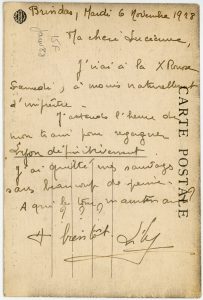 Brindas, Mardi 6 Novembre 1928
Ma chère Lucienne,
J'irai à la X Rousse
Samedi, à moins naturellement
d'imprévu.
J'attends l'heure de
mon train pour regagner
Lyon définitivement
J'ai quitté mes sauvages
sans beaucoup de peine.
A qui le tour maintenant
? ? ?
A bientôt
CARTE POSTALE